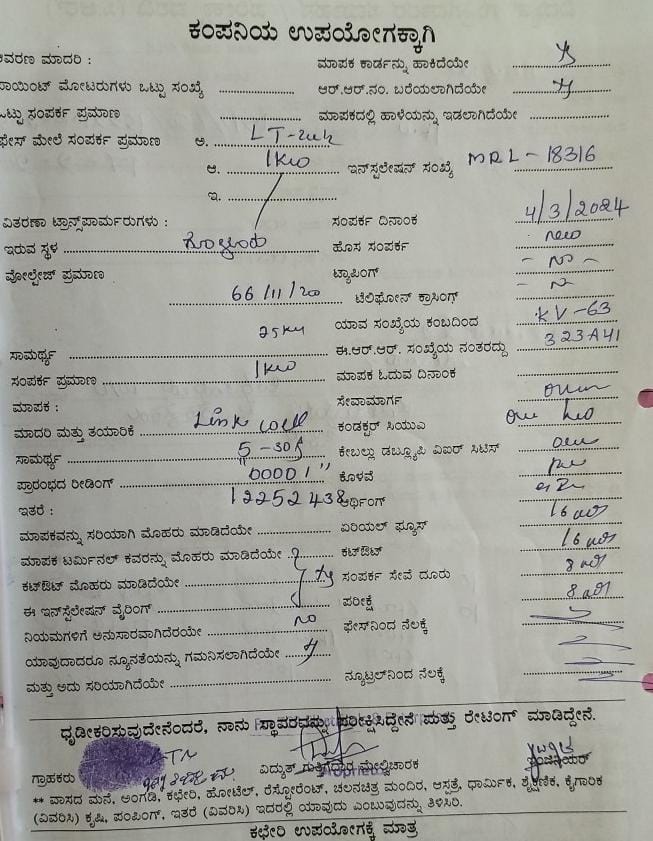 ಕಂಪನಿಯ ಉಪಯೋಗಕ್ಕಾಗಿ
ಆವರಣ ಮಾದರಿ : ಮಾಪಕ ಕಾರ್ಡನ್ನು ಹಾಕಿದೆಯೇ
ಪಾಯಿಂಟ್ ಮೋಟರುಗಳು ಒಟ್ಟು ಸಂಖ್ಯೆ ಆರ್.ಆರ್.ನಂ. ಬರೆಯಲಾಗಿದೆಯೇ
ಒಟ್ಟು ಸಂಪರ್ಕ ಪ್ರಮಾಣ ಮಾಪಕದಲ್ಲಿ ಹಾಳೆಯನ್ನು ಇಡಲಾಗಿದೆಯೇ
ಫೇಸ್ ಮೇಲೆ ಸಂಪರ್ಕ ಪ್ರಮಾಣ ಅ.
ಆ. 1KW ಇನ್‌ಸ್ಪಲೇಷನ್ ಸಂಖ್ಯೆ MRL - 18316
ಇ.
ವಿತರಣಾ ಟ್ರಾನ್ಸ್‌ಪಾರ್ಮರುಗಳು : ಸಂಪರ್ಕ ದಿನಾಂಕ 4/3/2024
ಇರುವ ಸ್ಥಳ ಹೊಸ ಸಂಪರ್ಕ new
ವೋಲ್ಟೇಜ್ ಪ್ರಮಾಣ ಟ್ಯಾಪಿಂಗ್ - No -
66/11/ ಟೆಲಿಫೋನ್ ಕ್ರಾಸಿಂಗ್
25KV ಯಾವ ಸಂಖ್ಯೆಯ ಕಂಬದಿಂದ KV-63
ಸಾಮರ್ಥ್ಯ ಈ.ಆರ್.ಆರ್. ಸಂಖ್ಯೆಯ ನಂತರದ್ದು 323A41
ಸಂಪರ್ಕ ಪ್ರಮಾಣ 1KW ಮಾಪಕ ಓದುವ ದಿನಾಂಕ
ಮಾಪಕ : ಸೇವಾಮಾರ್ಗ
ಮಾದರಿ ಮತ್ತು ತಯಾರಿಕೆ Link well ಕಂಡಕ್ಟರ್ ಸಿಯುವಿ
ಸಾಮರ್ಥ್ಯ 5-30A ಕೇಬಲ್ಲು ಡಬ್ಲ್ಯೂಪಿ ವಿಐರ್ ಸಿಟಿಸ್
ಪ್ರಾರಂಭದ ರೀಡಿಂಗ್ 00001" ಕೊಳವೆ
ಇತರೆ : 12252438 ಆರ್ಥಿಂಗ್
ಮಾಪಕವನ್ನು ಸರಿಯಾಗಿ ಮೊಹರು ಮಾಡಿದೆಯೇ ಏರಿಯಲ್ ಫ್ಯೂಸ್
ಮಾಪಕ ಟರ್ಮಿನಲ್ ಕವರನ್ನು ಮೊಹರು ಮಾಡಿದೆಯೇ ಕಟ್‌ಔಟ್
ಕಟ್‌ಔಟ್ ಮೊಹರು ಮಾಡಿದೆಯೇ ಸಂಪರ್ಕ ಸೇವೆ ದೂರು
ಈ ಇನ್‌ಸ್ಪೆಲೇಷನ್ ವೈರಿಂಗ್ ಪರೀಕ್ಷೆ
ನಿಯಮಗಳಿಗೆ ಅನುಸಾರವಾಗಿದೆರಯೇ No ಫೇಸ್‌ನಿಂದ ನೆಲಕ್ಕೆ
ಯಾವುದಾದರೂ ನ್ಯೂನತೆಯನ್ನು ಗಮನಿಸಲಾಗಿದೆಯೇ
ಮತ್ತು ಅದು ಸರಿಯಾಗಿದೆಯೇ ನ್ಯೂಟ್ರಲ್‌ನಿಂದ ನೆಲಕ್ಕೆ
ಧೃಡೀಕರಿಸುವುದೇನೆಂದರೆ, ನಾನು ಸ್ಥಾವರವನ್ನು ಪರೀಕ್ಷಿಸಿದ್ದೇನೆ ಮತ್ತು ರೇಟಿಂಗ್ ಮಾಡಿದ್ದೇನೆ.
ಗ್ರಾಹಕರು ವಿದ್ಯುತ್ ಗುತ್ತಿಗೆದಾರ ಮೇಲ್ವಿಚಾರಕ ಇಂಜಿನಿಯರ್
** ವಾಸದ ಮನೆ, ಅಂಗಡಿ, ಕಛೇರಿ, ಹೋಟೆಲ್, ರೆಸ್ಟೋರೆಂಟ್, ಚಲನಚಿತ್ರ ಮಂದಿರ, ಆಸ್ಪತ್ರೆ, ಧಾರ್ಮಿಕ, ಶೈಕ್ಷಣಿಕ, ಕೈಗಾರಿಕ
(ವಿವರಿಸಿ) ಕೃಷಿ, ಪಂಪಿಂಗ್, ಇತರೆ (ವಿವರಿಸಿ) ಇದರಲ್ಲಿ ಯಾವುದು ಎಂಬುವುದನ್ನು ತಿಳಿಸಿರಿ.
ಕಛೇರಿ ಉಪಯೋಗಕ್ಕೆ ಮಾತ್ರ